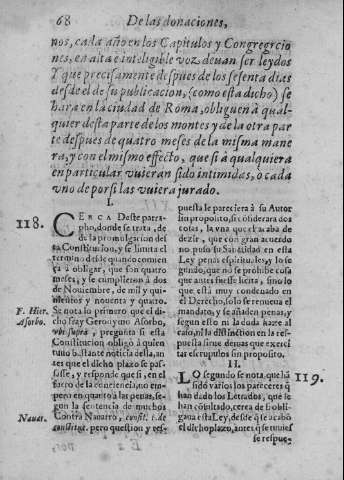 68 De las donaciones,
nos, cada año en los Capitulos y Congregacio
nes, en alta è inteligible voz, devan ser leydos
Y que precisamente despues de los sesenta dias
desde el de su publicacion, (como esta dicho) se
hara en la ciudad de Roma, obliguen à qual-
quier desta parte de los montes y de la otra par
te despues de quatro meses de la misma mane
ra, y con el mismo effecto, que si à qualquiera
en particular vuieran sido intimidas, o cada
vno de por si las vuiera jurado.
I.
118.
CERCA Deste parra-
pho, donde se trata, de
de la promulgacion des
ta Constitucion, y se limita el
termino desde quando comien
ça à obligar, que son quatro
meses, y se cumplieron à dos
de Nouiembre, de mil y qui-
nientos y nouenta y quatro.
F. Hier.
Asorbo.
Se nota lo primero que el di-
cho fray Geronymo Asorbo,
vbi supra, pregunta si esta
Constitucion obligò à quien
tuuo bastante noticia della, an
tes que el dicho plazo se pas-
sasse, y responde que si, en el
fuero de la conciencia, no em
pero en quanto à las penas, se-
gun la sentencia de muchos
Nauar.
Contra Nauarro, consil. 1. de
constitut. pero question y res-
puesta le pareciera à su Autor
sin proposito, si cõsiderara dos
cosas, la vna que el acaba de
dezir, que con gran acuerdo
no puso su Santidad en esta
Ley penas espirituales, y lo se
gundo, que no se prohibe cosa
que antes fuesse licita, sino lo
que està muy condenado en
el Derecho, solo se renueua el
mandato, y se añaden penas, y
segun esto ni la duda haze al
caso, ni la distinction en la res-
puesta sirue de mas que exerci
tar escrupulos sin proposito.
II.
119.
LO segundo se nota, que ha
sido varios los pareceres q̃
han dado los Letrados, que se
han cõsultado, cerca de si obli-
gaua esta Ley, desde q̃ se acabo
el dicho plazo, antes q̃ se tuuies
se respue-